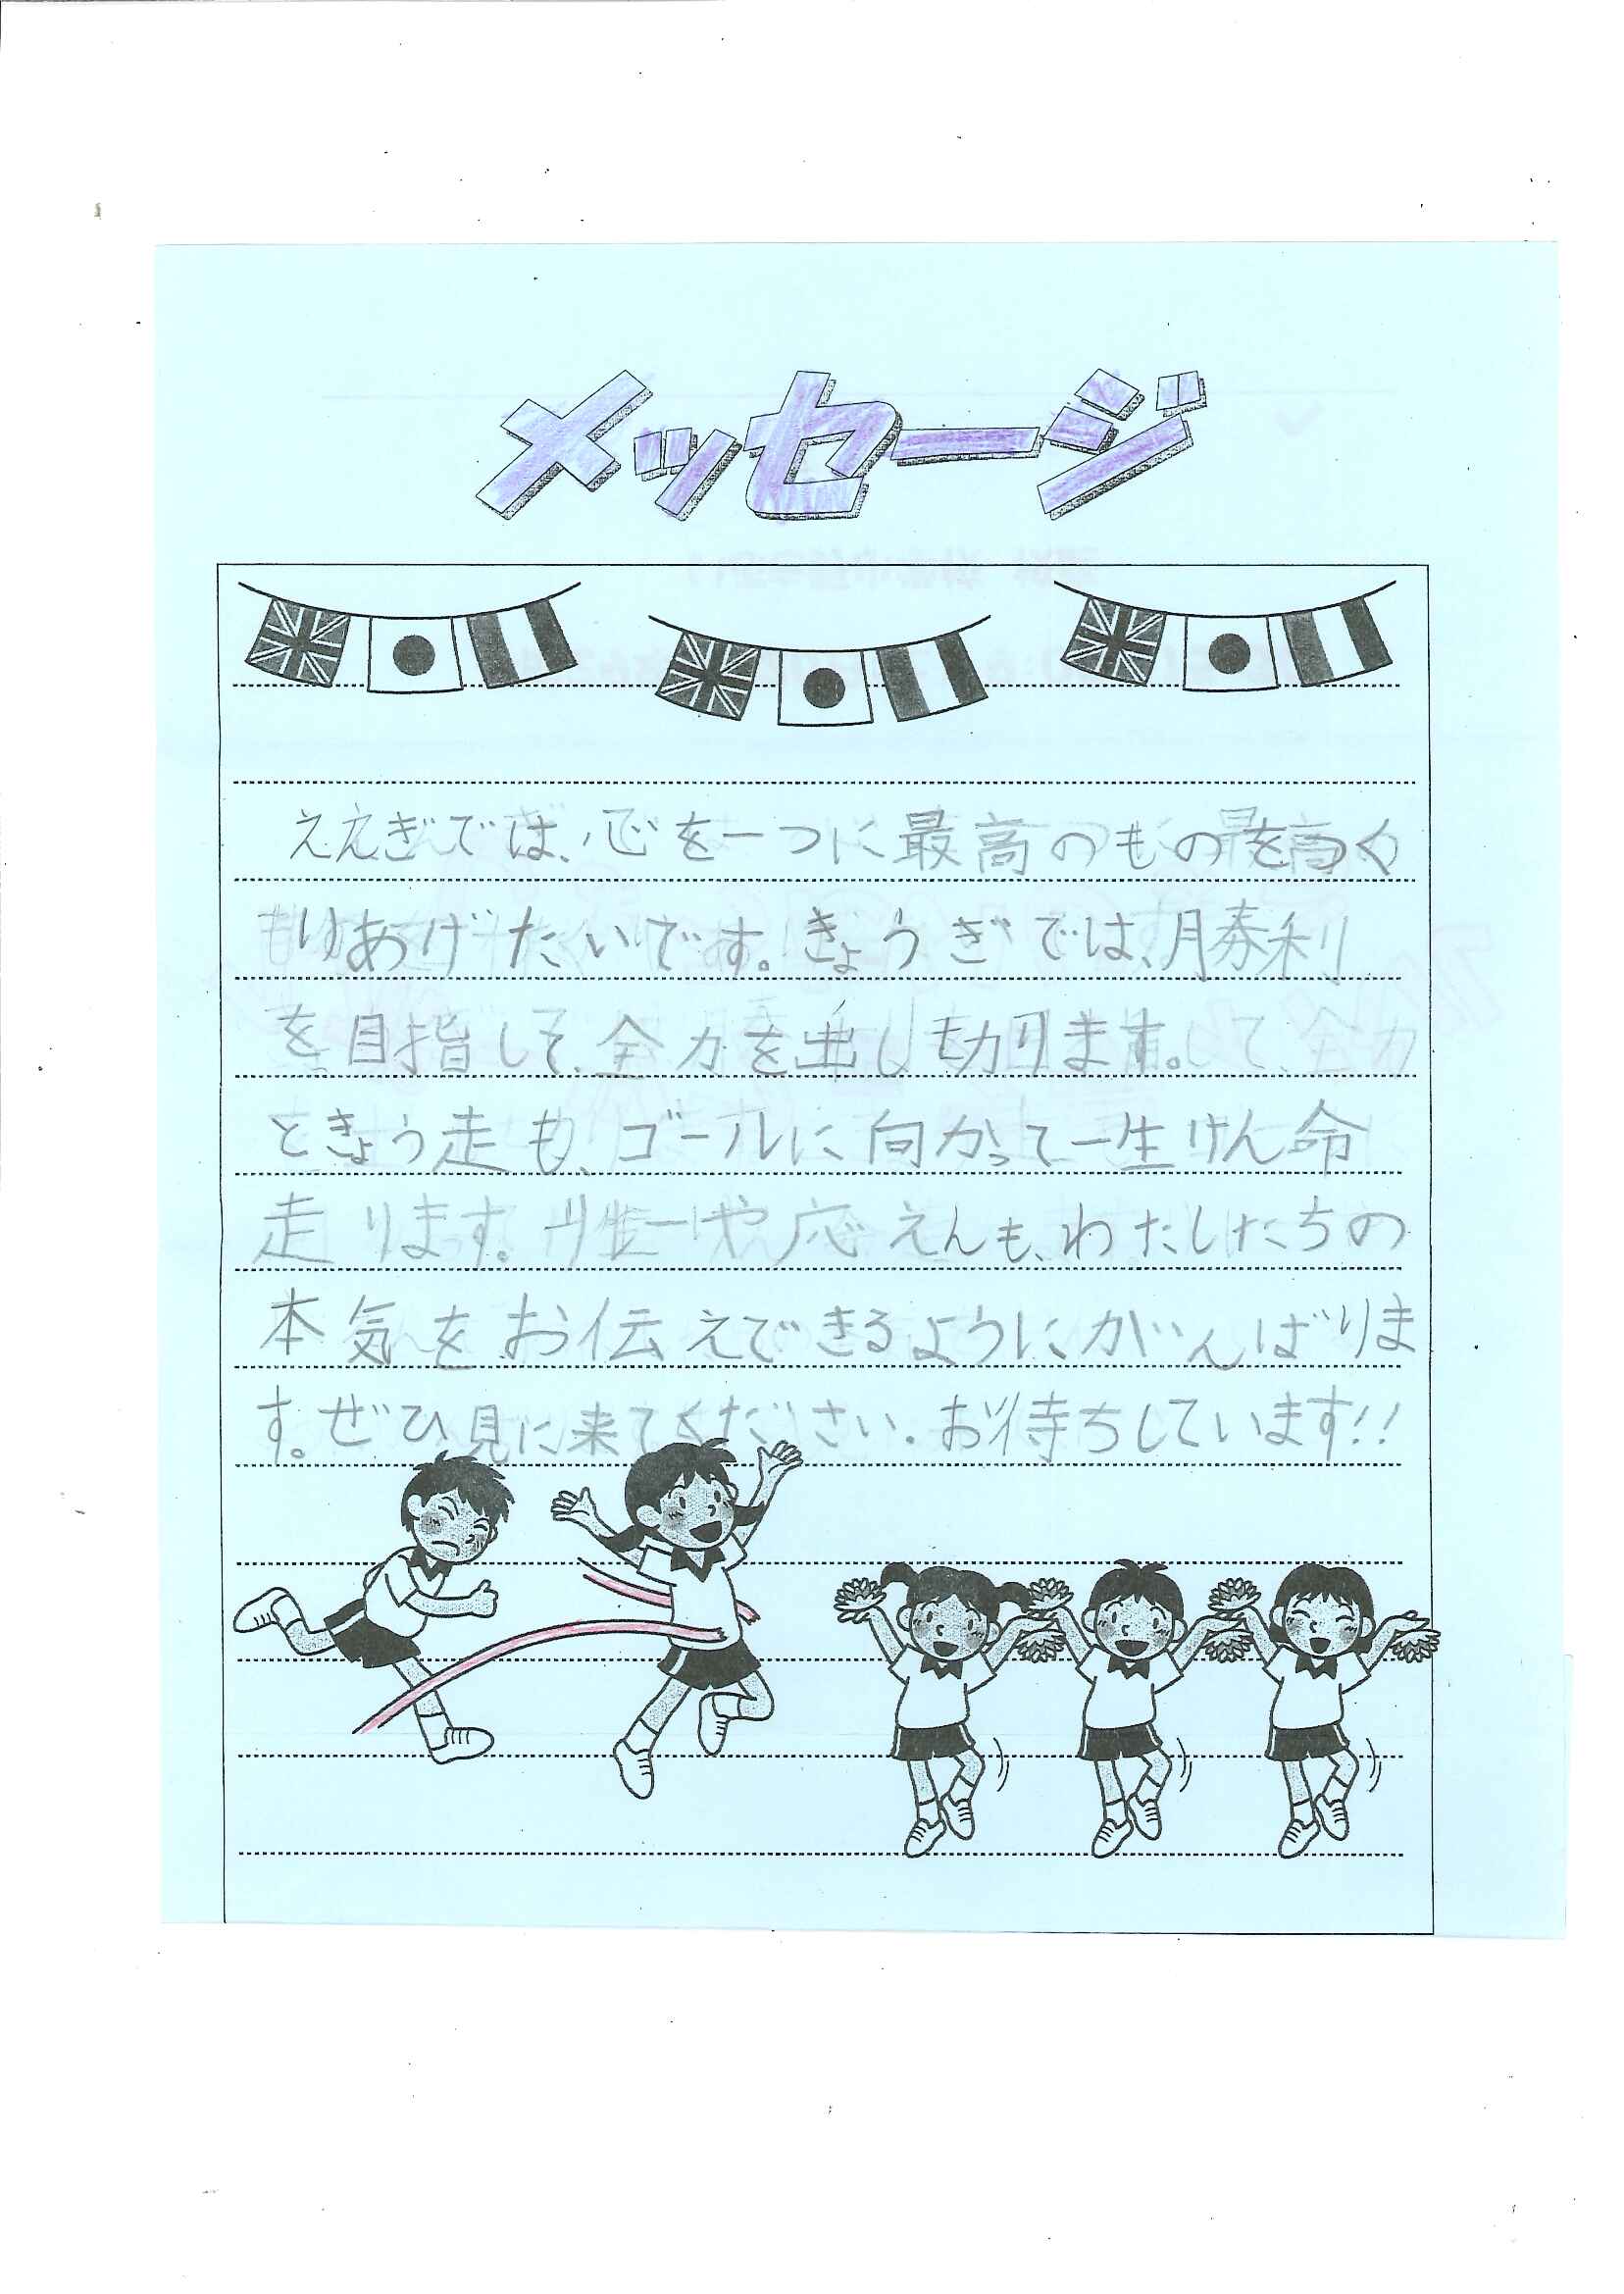 メッセージ
えんぎでは、心を一つに最高のものをつく
りあげたいです。きょうぎでは、勝利
を目指して、全力を出し切ります。
ときょう走も、ゴールに向かって一生けん命
走ります。リレーや応えんも、わたしたちの
本気をお伝えできるようにがんばりま
す。ぜひ見に来てください。お待ちしています!!